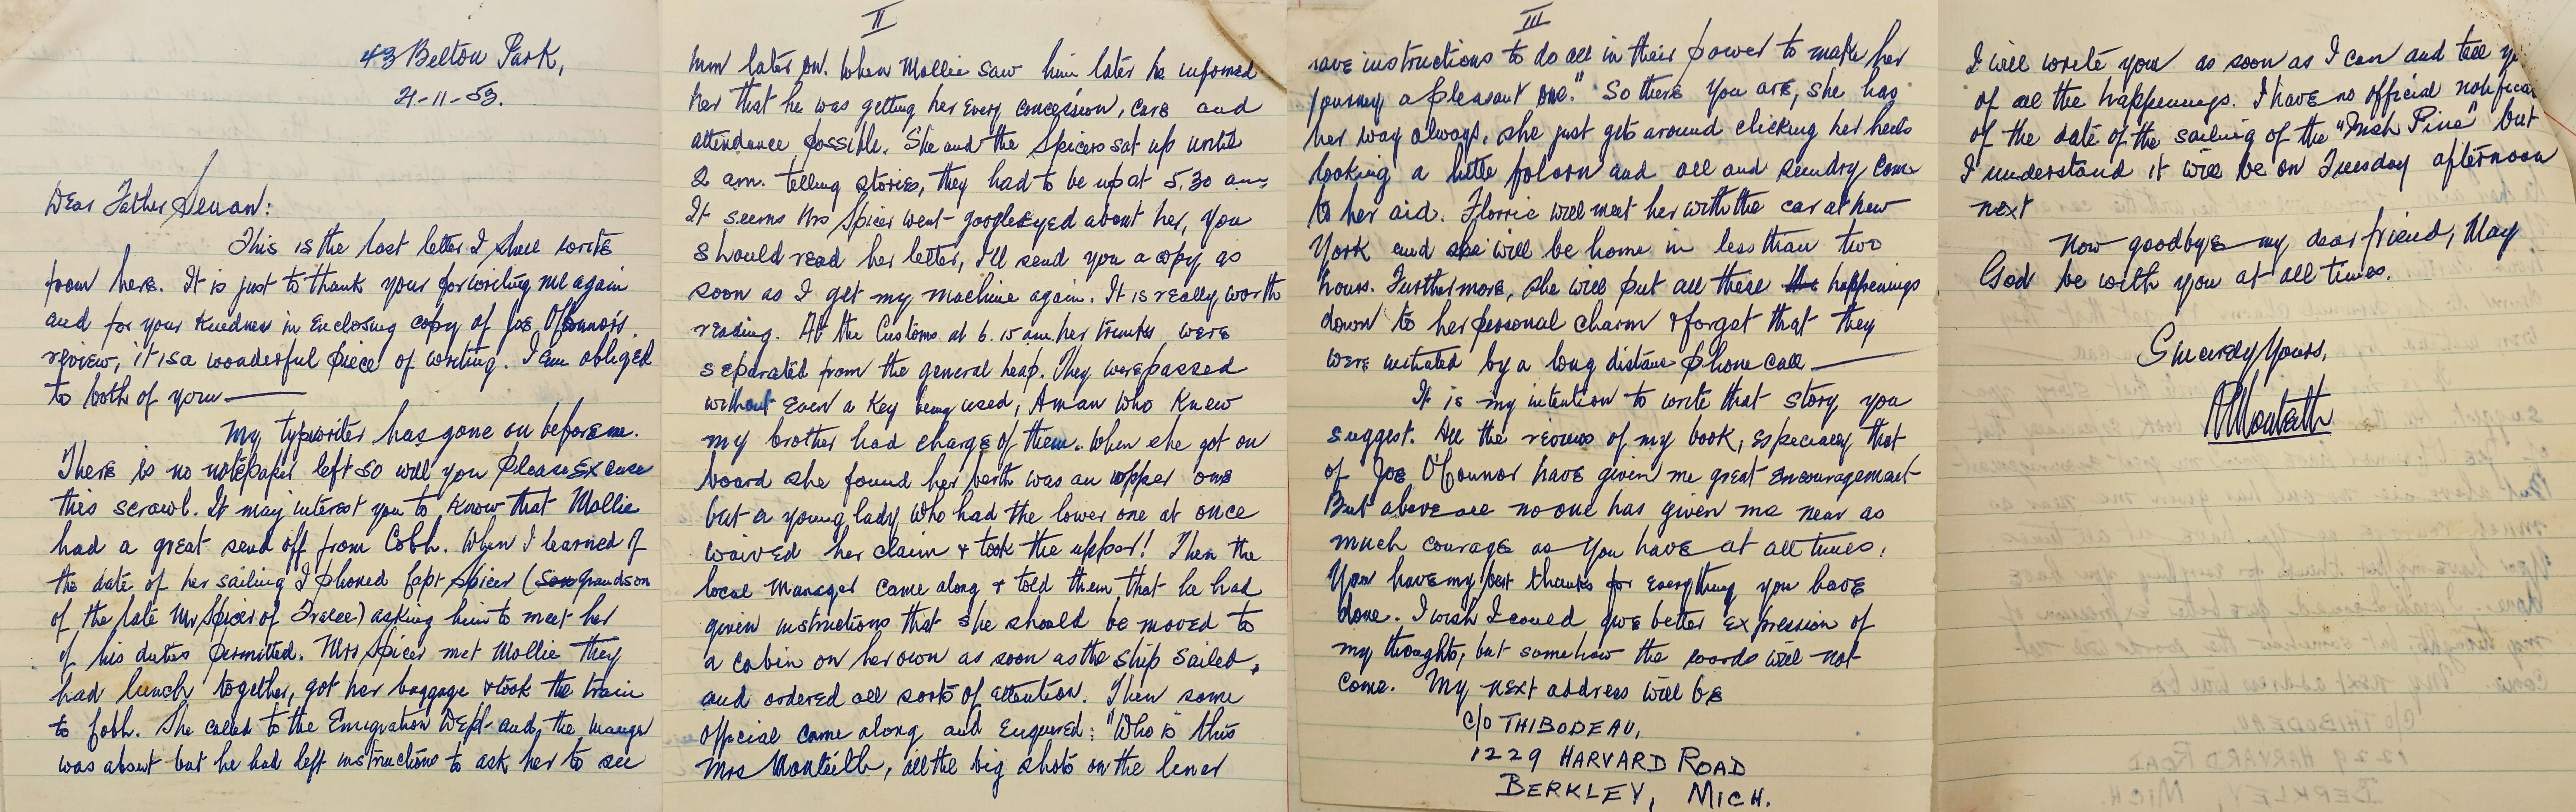 43 Belton Park,
21-11-53.
Dear Father Senan:
This is the last letter I shall write
from here. It is just to thank your for writing me again
and for your kindness in enclosing copy of Joe O'Connor's
review, it is a wonderful piece of writing. I am obliged
to both of you —
My typewriter has gone on before me.
There is no notepaper left so will you please excuse
this scrawl. It may interest you to know that Mollie
had a great send off from Cobh. When I learned of
the date of her sailing I phoned Capt Spicer (Son grandson
of the late Mr Spicer of Tralee) asking him to meet her
if his duties permitted. Mrs Spicer met Mollie they
had lunch together, got her baggage & took the train
to Cobh. She called to the Emigration Dept. and the manager
was absent but he had left instructions to ask her to see
II
him later on. When Mollie saw him later he informed
her that he was getting her every concession, care and
attendance possible. She and the Spicers sat up until
2 am. telling stories, they had to be up at 5.30 am
It seems Mrs Spicer went googleeyed about her, you
should read her letter, I'll send you a copy as
soon as I get my machine again. It is really worth
reading. At the Customs at 6.15 am her trunks were
separated from the general heap. They were passed
without even a key being used, A man who knew
my brother had charge of them. When she got on
board she found her berth was an upper one
but a young lady who had the lower one at once
waived her claim & took the upper! Then the
local manager came along & told them that he had
given instructions that she should be moved to
a cabin on her own as soon as the ship sailed,
and ordered all sorts of attention. Then some
official came along and enquired: "Who is this
Mrs Monteith, all the big shots on the liner
III
have instructions to do all in their power to make her
journey a pleasant one." So there you are, she has
her way always, she just gets around clicking her heels
looking a little folorn and all and sundry come
to her aid. Florrie will meet her with the car at New
York and she will be home in less than two
hours. Furthermore, she will put all these the happenings
down to her personal charm & forget that they
were initiated by a long distance phone call —
It is my intention to write that story you
suggest. All the reviews of my book, especially that
of Joe O'Connor have given me great encouragement
But above all no one has given me near as
much courage as you have at all times.
You have my best thanks for everything you have
done. I wish I could give better expression of
my thoughts, but somehow the words will not
come. My next address will be
C/O THIBODEAU,
1229 HARVARD ROAD
BERKLEY, MICH.
I will write you as soon as I can and tell
of all the happenings. I have no official
of the date of the sailing of the "Irish Pine" but
I understand it will be on Tuesday afternoon
next
Now goodbye my dear friend, May
God be with you at all times.
Sincerely Yours,
R Monteith